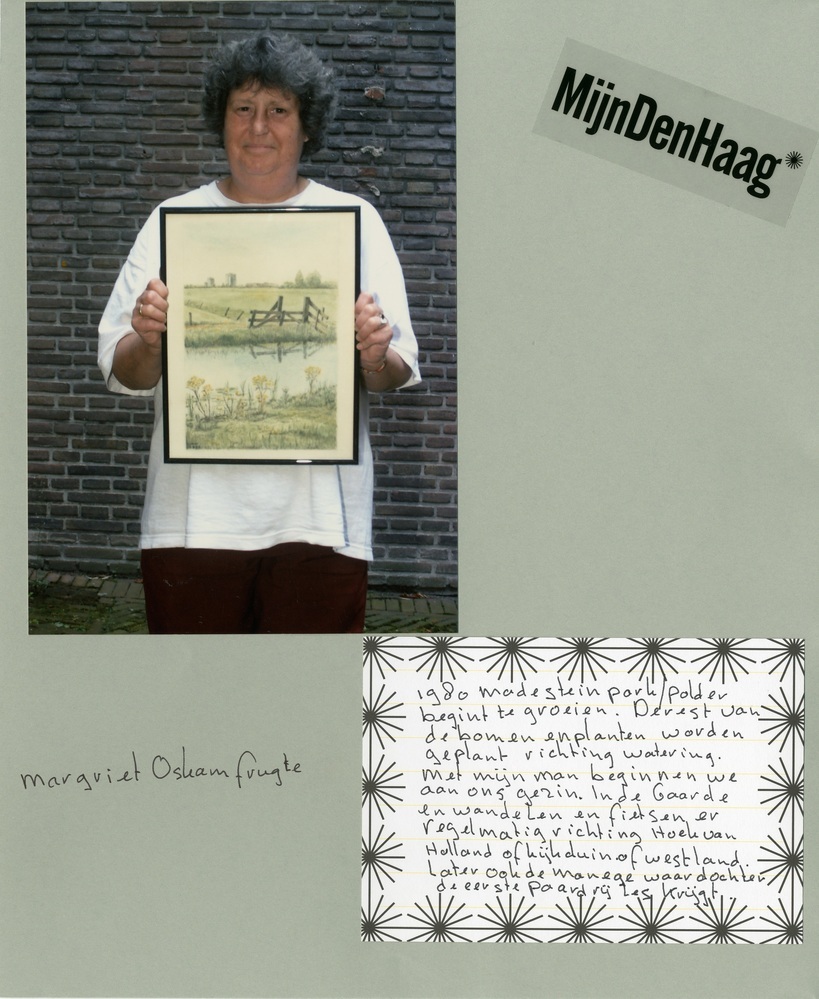 MijnDenHaag*
margriet Oskamfrugte
1980 madestein park/polder
begint te groeien. De rest van
de bomen en planten worden
geplant richting watering.
met mijn man beginnen we
aan ons gezin. In de Gaarde
en wandelen en fietsen er
regelmatig richting Hoek van
Holland of kijkduin of westland.
Later ook de manege waar dochter
de eerste paardrij les krijgt.